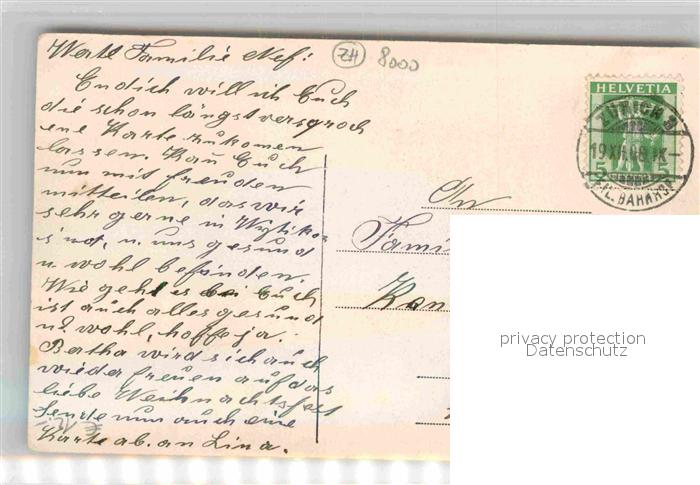 Werte Familie Nef:
Endich will ich Euch
die schon längst versproch
ene Karte zukomen
lassen. Kan Euch
nun mit freuden
mitteilen, das wir
sehr gerne in Wytiko
sind, u. uns gesund
u. wohl befinden.
Wie geht es bei Euch
ist auch alles gesund
u. wohl, hoffe ja.
Bertha wird sich auch
wieder freuen auf das
liebe Weihnachtsfest
Sende nun auch eine
Karte ab. an Lina.
ZH 8000
HELVETIA
5
ZÜRICH
BAHNH
An
Famil
privacy protection
Datenschutz